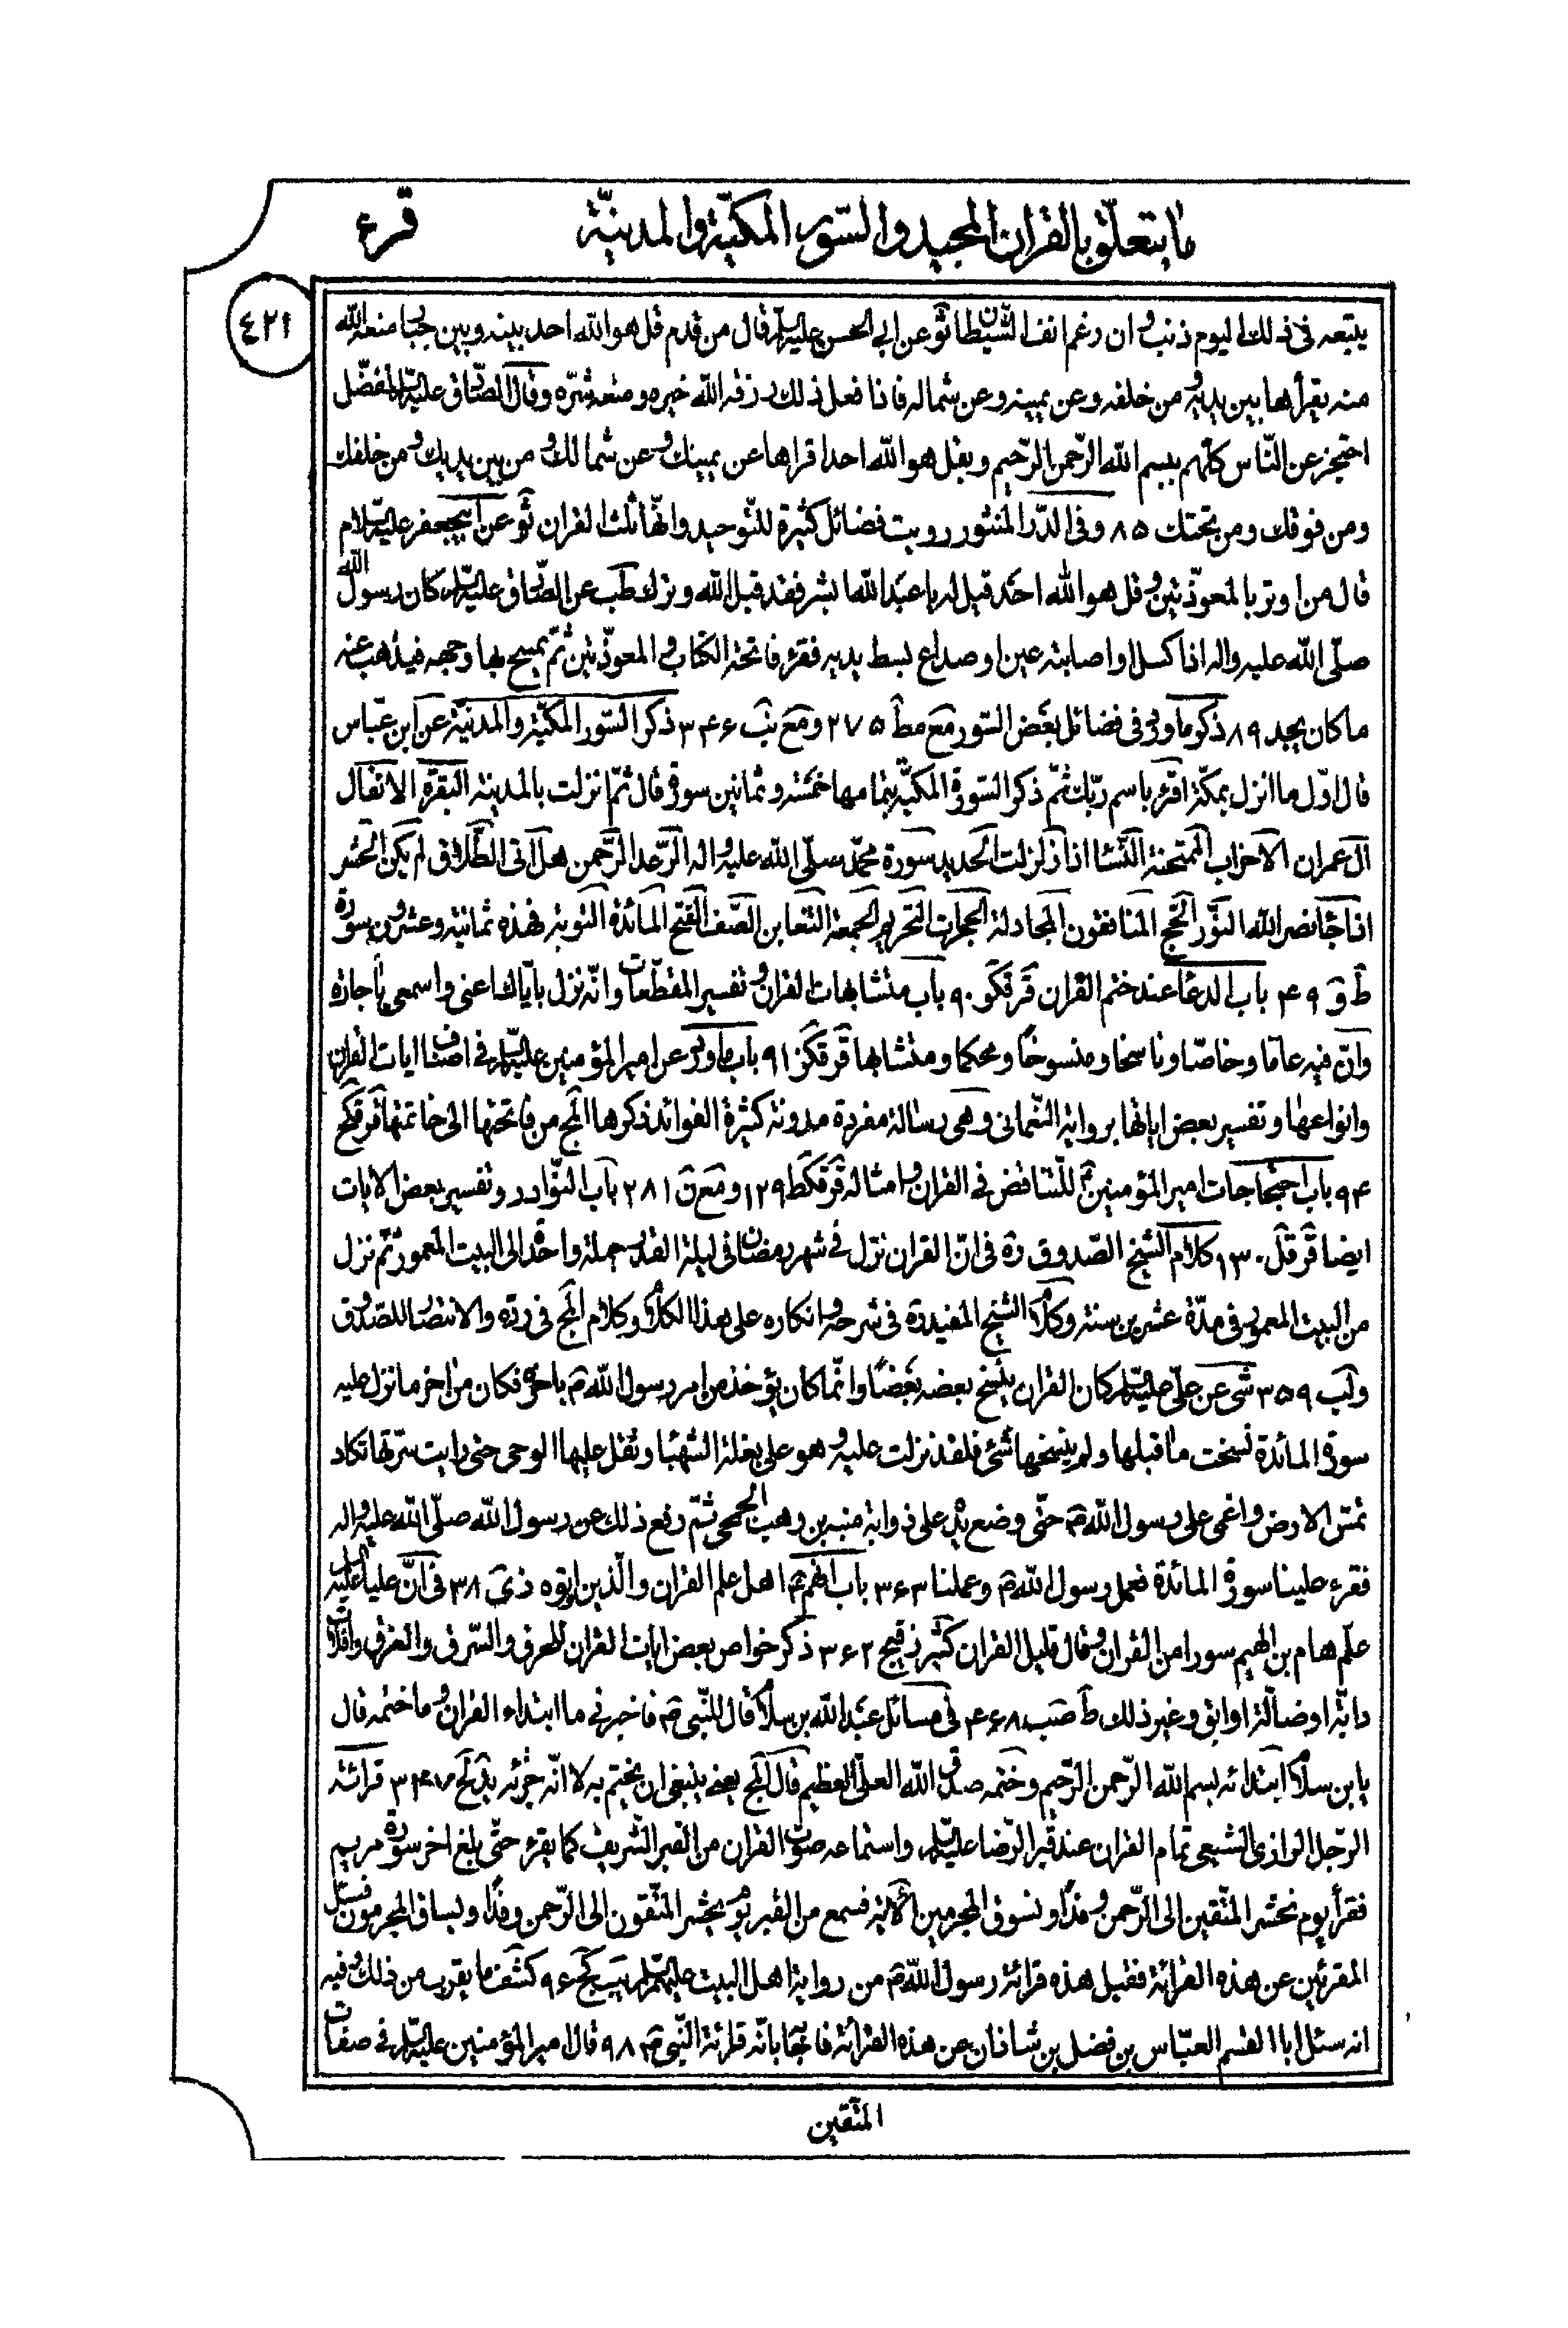 ما يتعلّق بالقران المجيد والسّور المكيّة والمدنيّة
قرء
٤٢١
يتبعه فى ذلك اليوم ذنب وان رغم انف الشّيطان ثو عن ابى الحسن عليه السّلم قال من قدم قل هو الله احد بينه وبين جبّار منعه الله
منه يقرأها بين يديه ومن خلفه وعن يمينه وعن شماله فاذا فعل ذلك رزقه الله خيره ومنعه شرّه وقال الصّادق عليه السّلم للمفضّل
احتجز عن النّاس كلّهم ببسم الله الرّحمن الرّحيم وبقل هو الله احد اقراها عن يمينك وعن شمالك ومن بين يديك ومن خلفك
ومن فوقك ومن تحتك ٨۵ وفى الدّر المنثور رويت فضائل كثيرة للتّوحيد وانّها ثلث القران ثو عن ابيجعفر عليه السّلام
قال من اوتر بالمعوّذتين وقل هو الله احد قيل له يا عبد الله ابشر فقد قبل الله وترك طب عن الصّادق عليه السّلم كان رسول الله
صلّى الله عليه واله اذا كسل او اصابته عين او صداع بسط يديه فقرء فاتحة الكتاب والمعوّذتين ثمّ يمسح بها وجهه فيذهب عنه
ما كان يجد ٨٩ ذكر ما ورد فى فضائل بعض السّور مع مط ٢٧۵ ومع نب ٣۴۶ ذكر السّور المكيّة والمدنيّة عن ابن عبّاس
قال اوّل ما انزل بمكّة اقرء باسم ربّك ثمّ ذكر السّورة المكيّة بتمامها خمسة وثمانين سورة قال ثمّ نزلت بالمدينة البقرة الانفال
ال عمران الاحزاب الممتحنة النّساء اذا زلزلت الحديد سورة محمّد صلّى الله عليه واله الرّعد الرّحمن هل اتى الطّلاق لم يكن الحشر
اذا جاء نصر الله النّور الحّج المنافقون المجادلة الحجرات التّحريم الجمعة التّغابن الصّف الفتح المائدة التوبة فهذه ثمانية وعشرون سورة
ط ق ۴٩ باب الدعاء عند ختم القران قر قكو ٩٠ باب متشابهات القران وتفسير المقطّعات وانّه نزل بايّاك اعنى واسمعى يا جارة
وانّ فيه عامّا وخاصّا وناسخا ومنسوخا ومحكما ومتشابها قر قكز ٩١ باب ما ورد عن امير المؤمنين عليه السّلم فى اصناف ايات القران
وانواعها وتفسير بعض اياتها برواية النّعمانى وهى رسالة مفردة مدونة كثيرة الفوائد ذكرها المج من فاتحتها الى خاتمتها قر قكح
٩۴ باب احتجاجات امير المؤمنين ع للتّناقض فى القران وامثاله قر قكط ١٢٩ ومع ق ٢٨١ باب النّوادر وتفسير بعض الايات
ايضا قر قل ١٣٠ كلام الشيخ الصّدوق ره فى انّ القران نزل فى شهر رمضان فى ليلة القدر جملة واحدة الى البيت المعمور ثمّ نزل
من البيت المعمور فى مدّة عشرين سنة وكلام الشيخ المفيد ره فى شرحه وانكاره على هذا الكلام وكلام المج فى ردّه والانتصار للصّدوق
ولب ٣۵٩ شى عن علىّ عليه السّلم كان القران ينسخ بعضه بعضا وانّما كان يؤخذ من امر رسول الله ص باخره فكان من اخر ما نزل عليه
سورة المائدة نسخت ما قبلها ولم ينسخها شئ فلقد نزلت عليه وهو على بغلة الشهباء وثقل عليها الوحى حتى رايت سرّتها تكاد
تمسّ الارض واغمى على رسول الله ص حتّى وضع يده على ذوابة منبه بن وهب الجمحى ثمّ رفع ذلك عن رسول الله صلّى الله عليه واله
فقرء علينا سورة المائدة فعمل رسول الله ص وعملنا ٣۶٣ باب انّهم ع اهل علم القران والّذين اوتوه ز نى ٣٨ فى انّ عليا عليه السّلم
علّم هام بن الهيم سورا من القران وقال قليل القران كثير ز قيج ٣۶٢ ذكر خواص بعض ايات القران للحرق والسّرق والغرق وافلات
دابّة او ضالّة او ابق وغير ذلك ط صب ۴۶٨ فى مسائل عبد الله بن سلام قال للنّبى ص فاخبرنى ما ابتداء القران وما ختمه قال
يابن سلام ابتدائه بسم الله الرّحمن الرّحيم وختمه صدق الله العلىّ العظيم قال المج يعنى ينبغى ان يختم به لا انّه جزئه يد لح ٣۴٧ قرائة
الرّجل الرازى الشيعى تمام القران عند قبر الرّضا عليه السّلم واستماعه صوت القران من القبر الشّريف كما يقرء حتّى بلغ اخر سورة مريم
فقرأ يوم نحشر المتّقين الى الرّحمن وفدا ونسوق المجرمين الاية فسمع من القبر يوم يحشر المتّقون الى الرّحمن وفدا ويساق المجرمون فسئل
المقرئين عن هذه القرائة فقيل هذه قرائة رسول الله ص من رواية اهل البيت عليهم السّلم يب كج ٩۶ كشف ما يقرب من ذلك وفيه
انه سئل ابا القسم العبّاس بن فضل بن شاذان عن هذه القرائة فاجاب بانّه قرائة النّبى ص ٩٨ قال امير المؤمنين عليه السّلم فى صفات
المتّقين